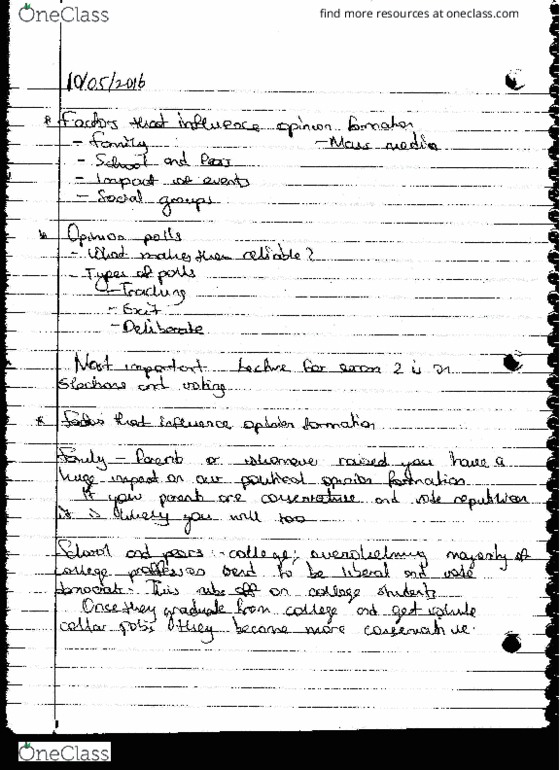 OneClass
find more resources at oneclass.com
10/05/2016
* Factors that influence opinion formation
- Family - Mass media
- School and Peers
- Impact of events
- Social groups
* Opinion polls
- What makes them reliable?
- Types of polls
- Tracking
- Exit
- Deliberate
Most important lecture for exam 2 is on
elections and voting
* Factors that influence opinion formation
Family - Parents or whomever raised you have a
huge impact on our political opinion formation
If your parents are conservative and vote republican
it is likely you will too
School and peers - college; overwhelming majority of
college professors tend to be liberal and vote
democrat. This rubs off on college students
Once they graduate from college and get white
collar jobs they become more conservative.
OneClass